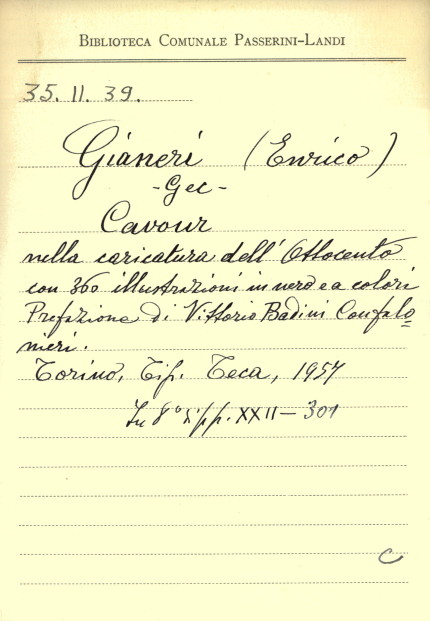 BIBLIOTECA COMUNALE PASSERINI-LANDI
35. II. 39.
Gianeri (Enrico)
- Gec -
Cavour
nella caricatura dell' Ottocento
con 360 illustrazioni in nero e a colori
Prefazione di Vittorio Badini Confalo
nieri.
Torino, Tip. Teca, 1957
In 8° di pp. XXII - 301
C